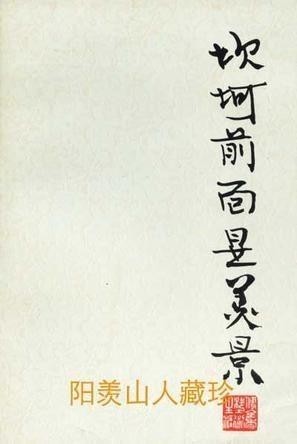 坎坷前面是美景
阳羡山人藏珍